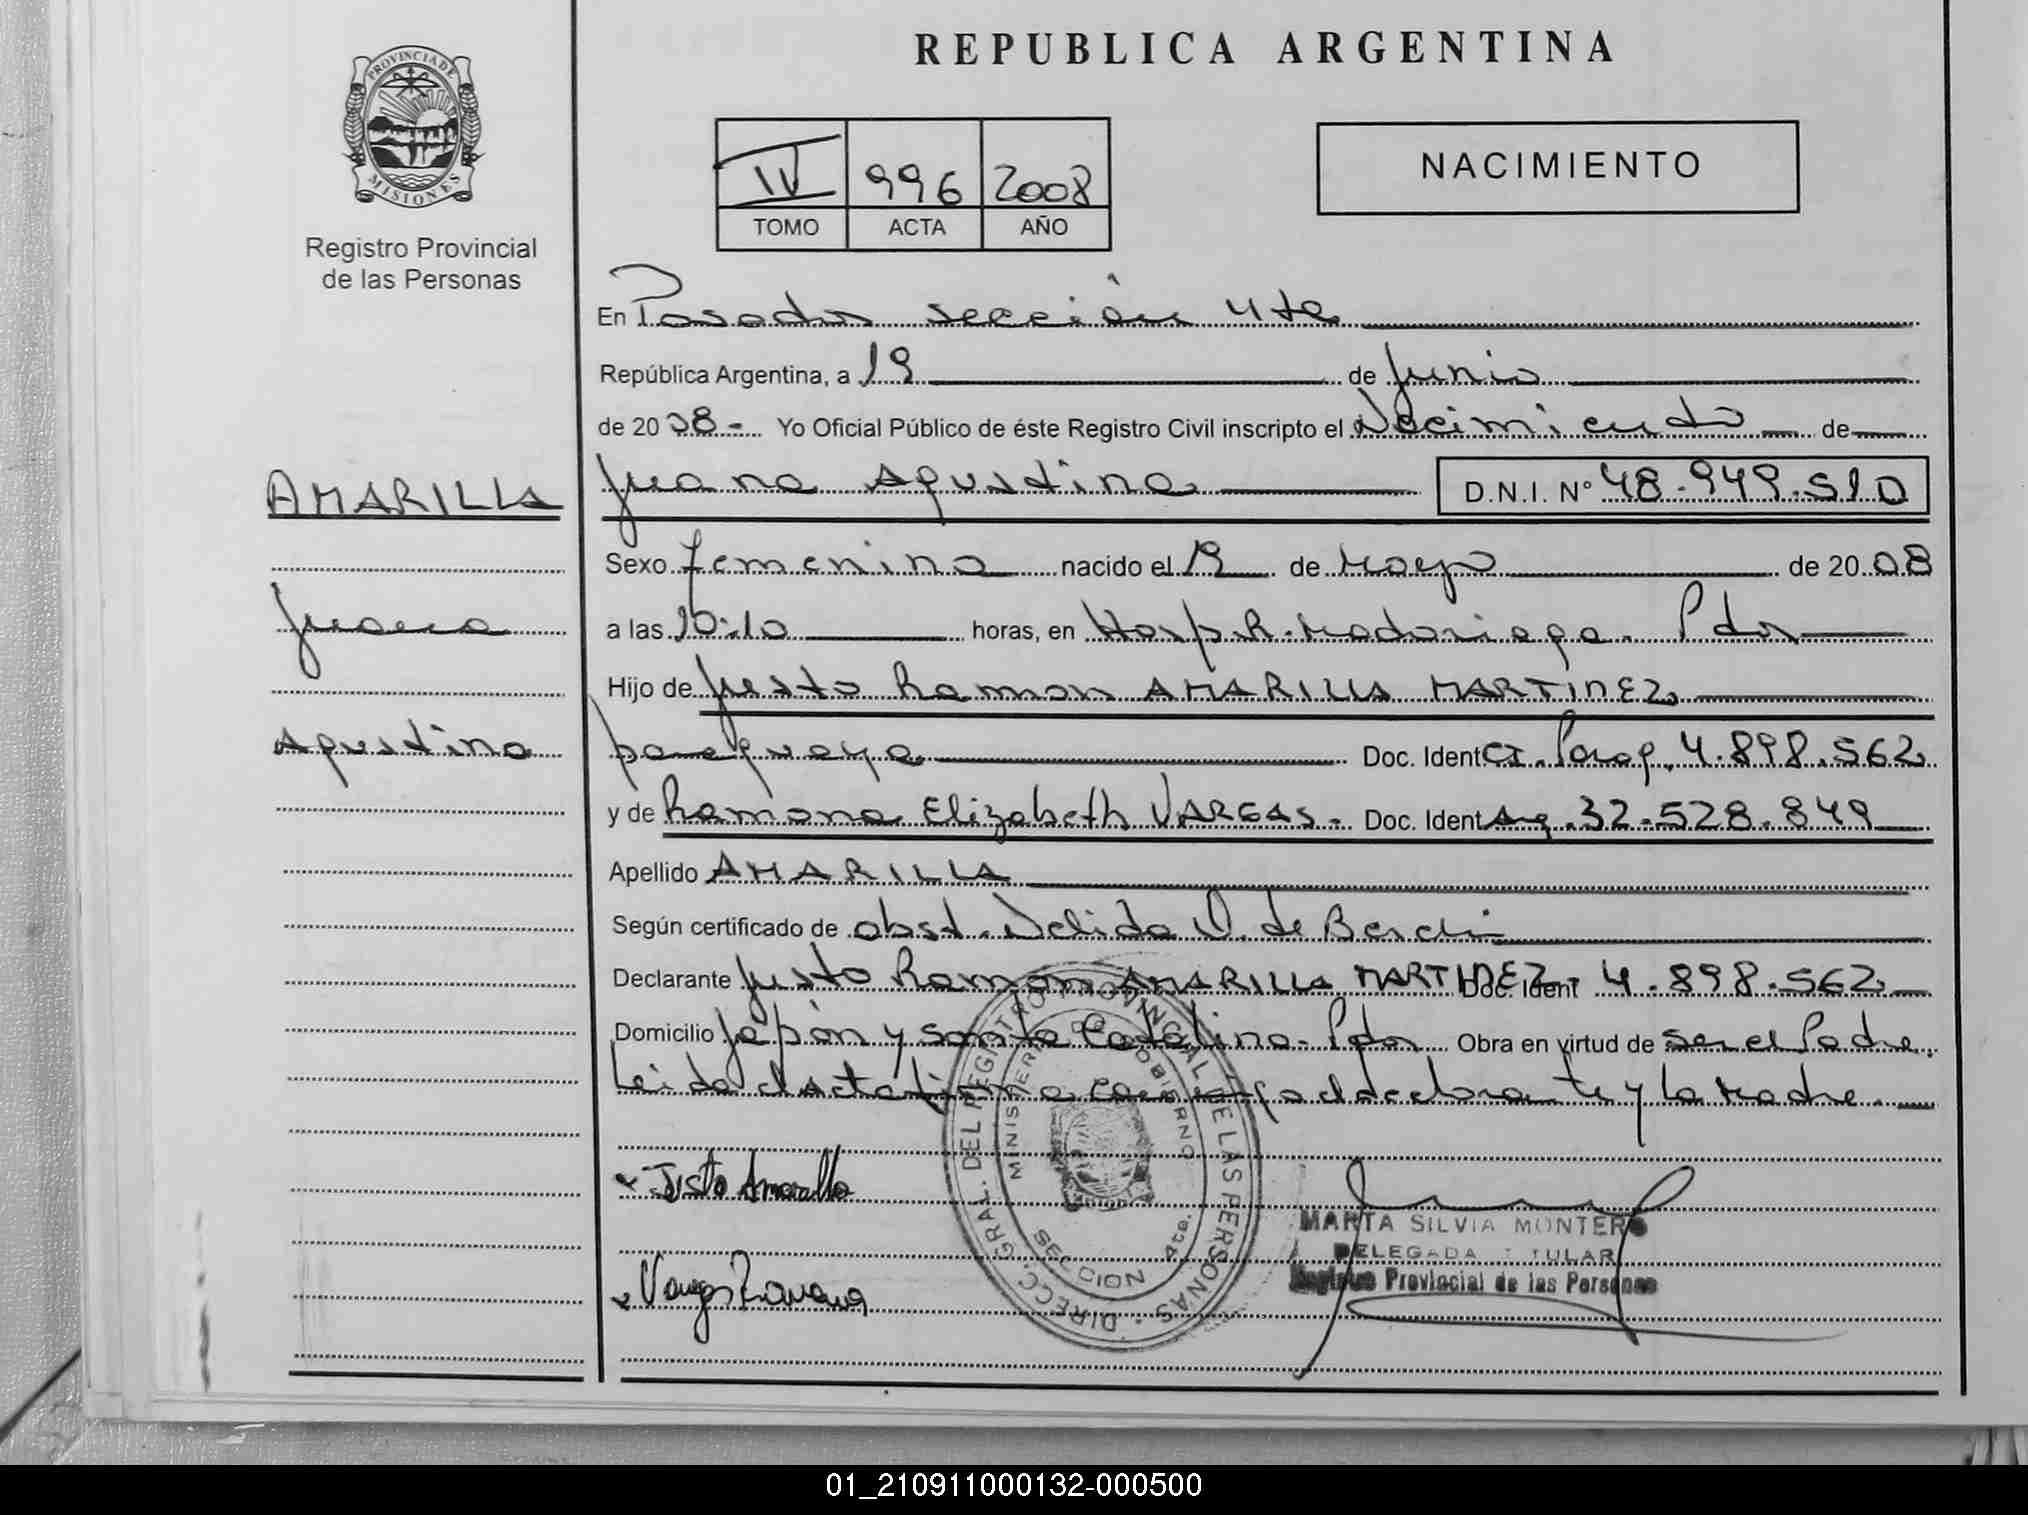 REPUBLICA ARGENTINA
PROVINCIA DE MISIONES
Registro Provincial
de las Personas
IV 996 2008
TOMO ACTA AÑO
NACIMIENTO
En Posadas sección 4ta
República Argentina, a 19 de Junio
de 2008- Yo Oficial Público de éste Registro Civil inscripto el Nacimiento de
AMARILLA
Juana Agustina D.N.I. N° 48.949.510
Sexo femenino nacido el 19 de Mayo de 2008
Juana
a las 10:10 horas, en Hosp. R. Madariaga. Pdas
Hijo de Justo Ramon AMARILLA MARTINEZ
Agustina
paraguaya Doc. Ident CI. Parag. 4.898.562
y de Ramona Elizabeth VARGAS. Doc. Ident Arg. 32.528.849
Apellido AMARILLA
Según certificado de obst. Nelida D. de
Declarante Justo Ramon AMARILLA MARTINEZ- Doc. Ident 4.898.562
Domicilio Japón y Santa Catalina- Pdas Obra en virtud de ser el Padre.
Leida el Acta firma conmigo el declarante y la Madre.
Justo Amarilla
Vargas Ramona
DIRECC. GRAL. DEL REGISTRO PROVINCIAL DE LAS PERSONAS
MINISTERIO DE GOBIERNO
SECCION 4ta.
MARTA SILVIA MONTERO
DELEGADA TITULAR
Registro Provincial de las Personas
01_210911000132-000500